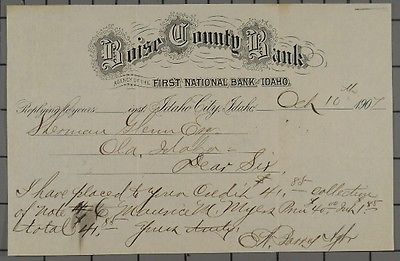 Boise County Bank
AGENCY OF THE FIRST NATIONAL BANK OF IDAHO.
Replying to yours inst Idaho City, Idaho Oct 10th 1907
Sherman Glenn Esq
Ola, Idaho
Dear Sir,
I have placed to your Credit $41.88 collection
of note Maurice M. Myers Prin $40.00 Int 1.88
total $41.88 Yours truly